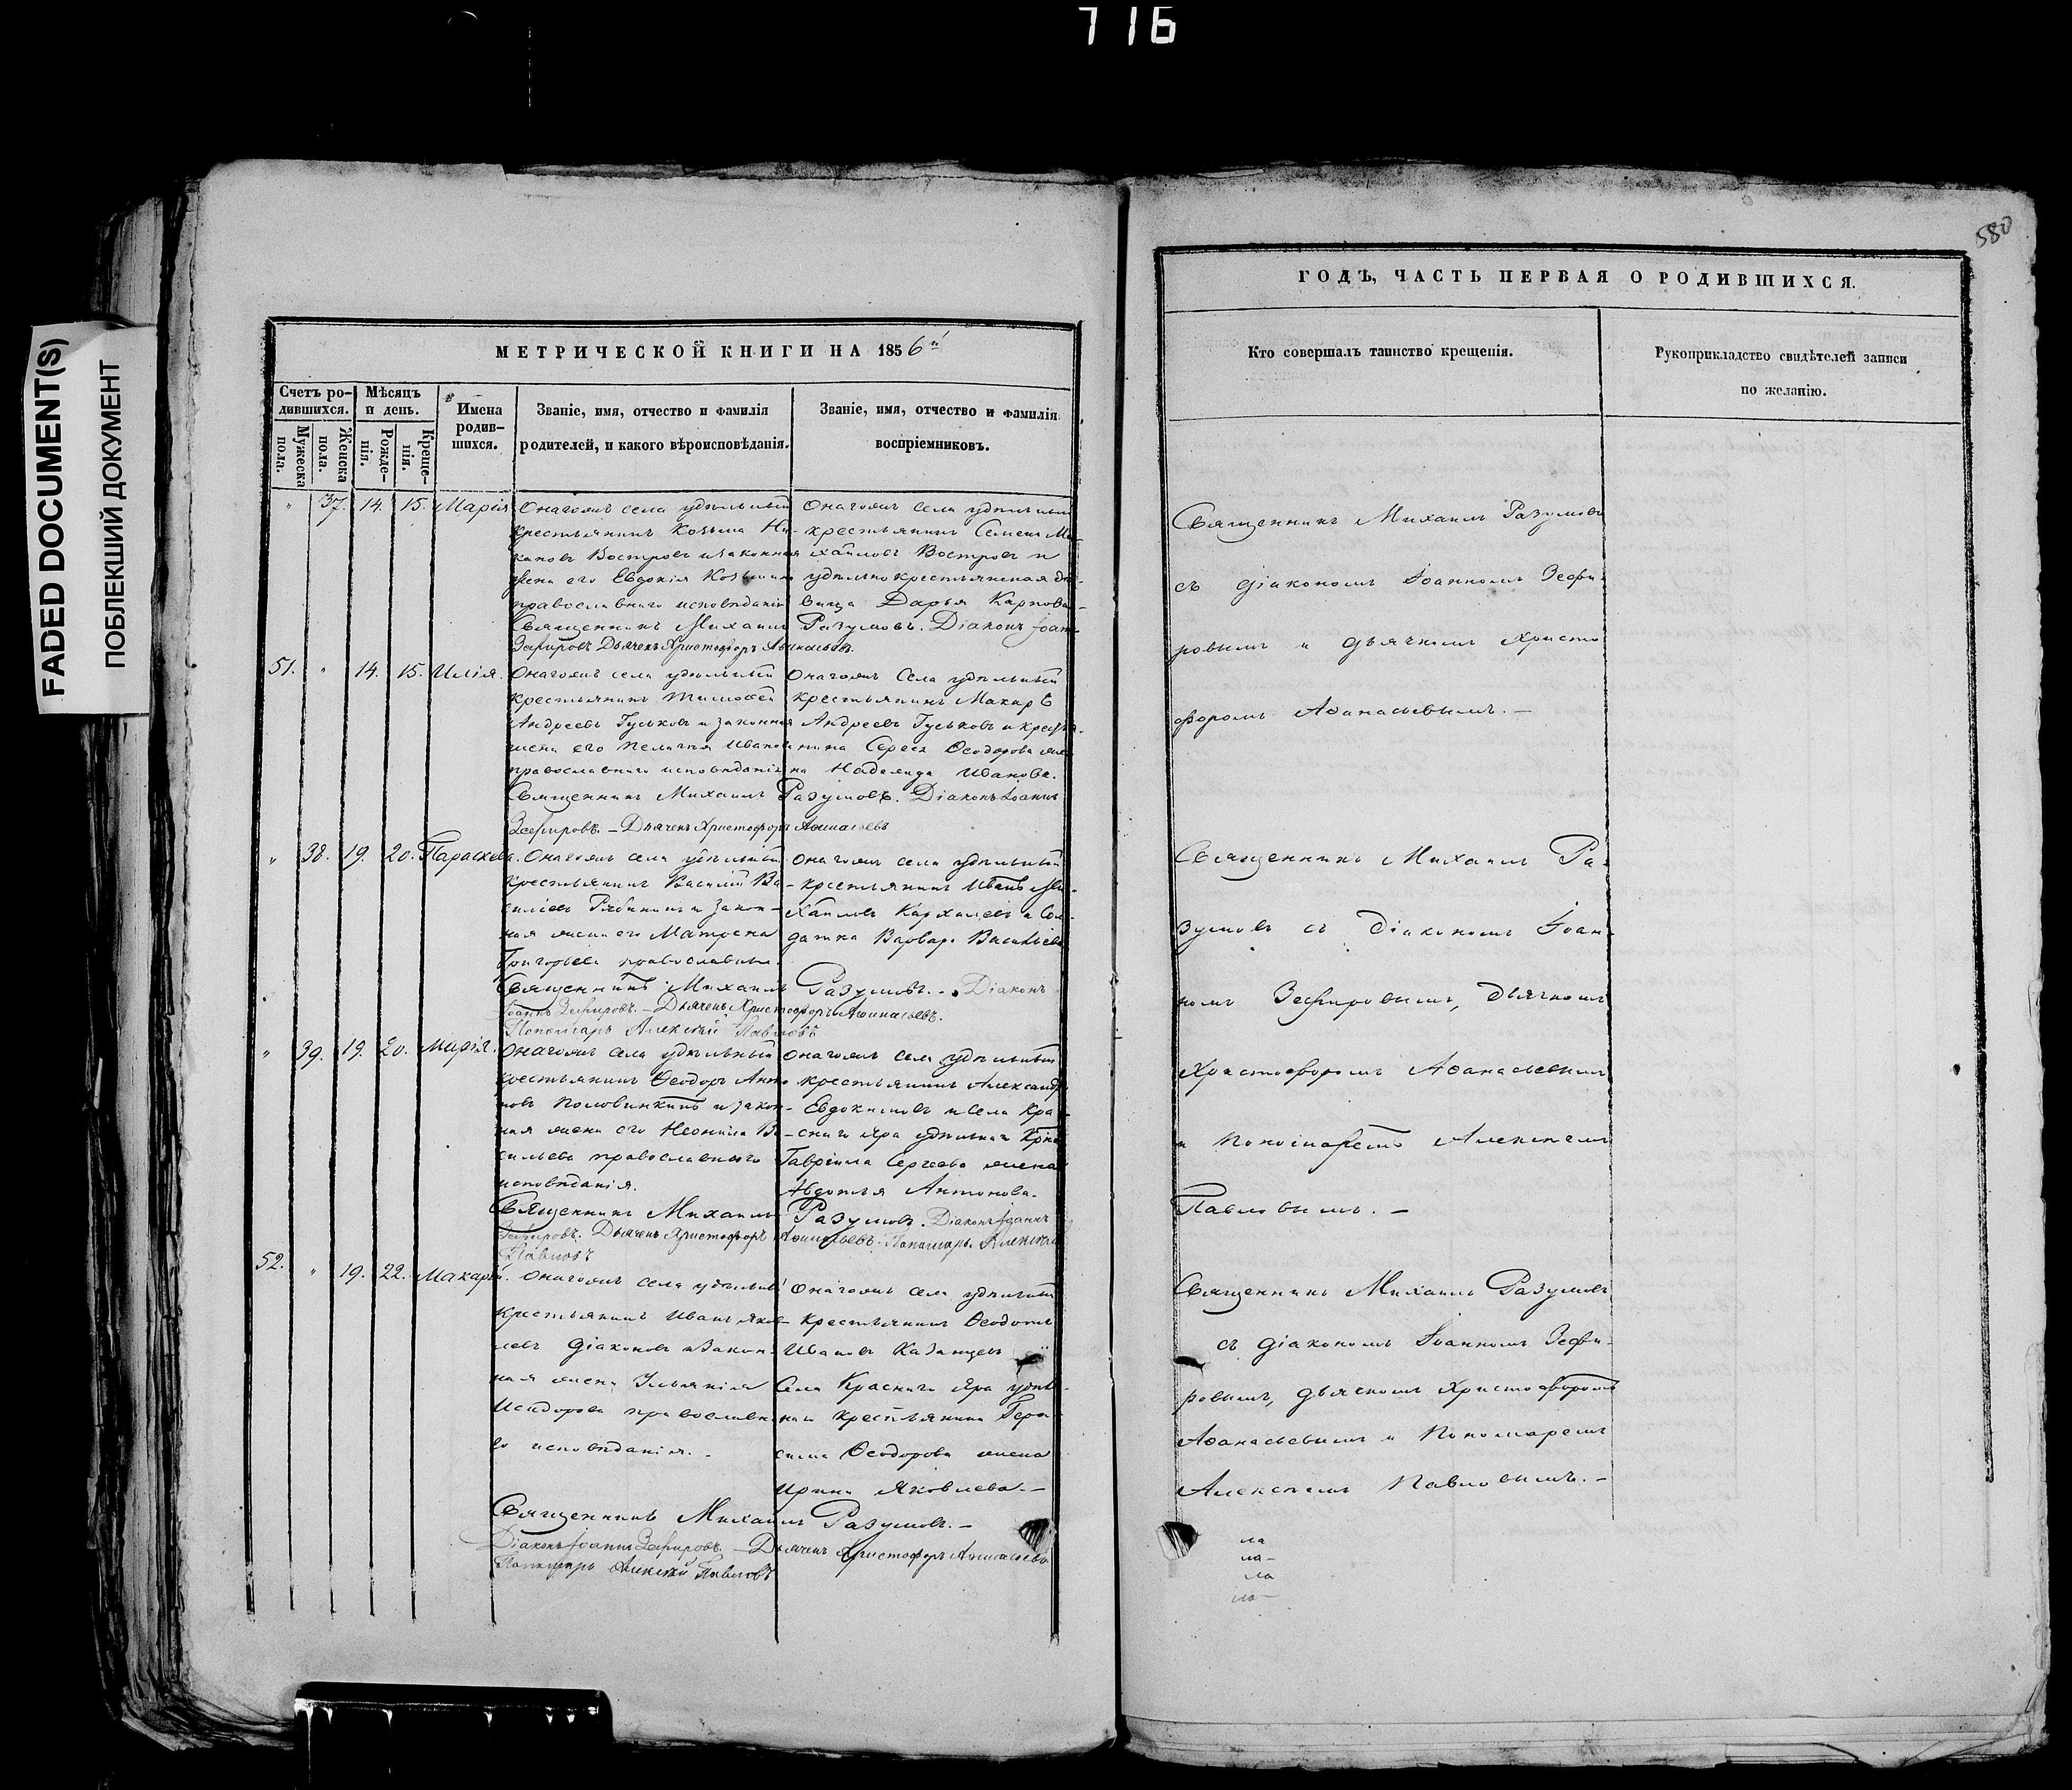 716
FADED DOCUMENT(S)
ПОБЛЕКШИЙ ДОКУМЕНТ
МЕТРИЧЕСКОЙ КНИГИ НА 1856й
Счетъ родившихся.
Мужеска пола.
Женска пола.
Мѣсяцъ и день.
Рожденія.
Крещенія.
Имена родившихся.
Званіе, имя, отчество и фамилія
родителей, и какого вѣроисповѣданія.
Званіе, имя, отчество и фамилія
воспріемниковъ.
" 37. 14. 15. Марія
Онагожъ села удѣльный
крестьянинъ Козьма Ни-
кановъ Востровъ и законная
жена его Евдокія Козьмина
православнаго исповѣданія
Онагожъ села удѣльный
крестьянинъ Семенъ Ми-
хайловъ Востровъ и
удѣльнокрестьянская дѣ-
вица Дарья Карпова-
Священникъ Михаилъ Разумовъ. Діаконъ Іоаннъ
Зефировъ Дьячекъ Христофоръ Афанасьевъ.
51. " 14. 15. Илія.
Онагожъ села удѣльный
крестьянинъ Тимофей
Андреевъ Гуськовъ и законная
жена его Пелагия Иванова
православнаго исповѣданія
Онагожъ села удѣльный
крестьянинъ Макаръ
Андреевъ Гуськовъ и кресть-
нина Сергея Ѳеодорова же-
на Надежда Иванова.
Священникъ Михаилъ Разумовъ. Діаконъ Іоаннъ
Зефировъ. – Дьячекъ Христофоръ Афанасьевъ
" 38. 19. 20. Параскева.
Онагожъ села удѣльный
крестьянинъ Василій Ва-
силіевъ Рябининъ и закон-
ная жена его Матрена
Григорьева православныя.
Онагожъ села удѣльный
крестьянинъ Иванъ Ми-
хайловъ и Сол-
датка Варвара Васильева
Священникъ Михаилъ Разумовъ. – Діаконъ
Іоаннъ Зефировъ. – Дьячекъ Христофоръ Афанасьевъ.
Пономарь Алексѣй Павловъ
" 39. 19. 20. Марія.
Онагожъ села удѣльный
крестьянинъ Ѳеодоръ Анто-
новъ Половинкинъ и закон-
ная жена его Неонила Ва-
сильева православнаго
исповѣданія.
Онагожъ села удѣльный
крестьянинъ Александръ
Евдокимовъ и села Кра-
снаго Яра удѣльнаго Кр-на
Гавріила Сергеева жена
Авдотья Антонова.
Священникъ Михаилъ Разумовъ. Діаконъ Іоаннъ
Зефировъ. Дьячекъ Христофоръ Афанасьевъ. Пономарь Алексѣй
Павловъ
52. " 19. 22. Макарій.
Онагожъ села удѣльный
крестьянинъ Иванъ Яков-
левъ Діаконовъ и закон-
ная жена Ульянія
Исидорова православна-
го исповѣданія. –
Онагожъ села удѣльный
крестьянинъ Ѳеодотъ
Ивановъ Казанцевъ и
села Краснаго Яра удѣль-
наго крестьянина Гера-
сима Ѳеодорова жена
Ирина Яковлева. –
Священникъ Михаилъ Разумовъ. –
Діаконъ Іоаннъ Зефировъ. – Дьячекъ Христофоръ Афанасьевъ.
Пономарь Алексѣй Павловъ
580
ГОДЪ, ЧАСТЬ ПЕРВАЯ О РОДИВШИХСЯ.
Кто совершалъ таинство крещенія.
Рукоприкладство свидѣтелей записи
по желанію.
Священникъ Михаилъ Разумовъ
съ діакономъ Іоанномъ Зефи-
ровымъ и дьячкомъ Христо
форомъ Аѳанасьевымъ. –
Священникъ Михаилъ Ра-
зумовъ съ Діакономъ Іоан-
номъ Зефировымъ, дьячкомъ
Христофоромъ Аѳанасьевымъ
и пономаремъ Алексѣемъ
Павловымъ. –
Священникъ Михаилъ Разумовъ
съ діакономъ Іоанномъ Зефи-
ровымъ, дьячкомъ Христофоромъ
Аѳанасьевымъ и Пономаремъ
Алексѣемъ Павловымъ. –
ла
ла-
ла
ла-